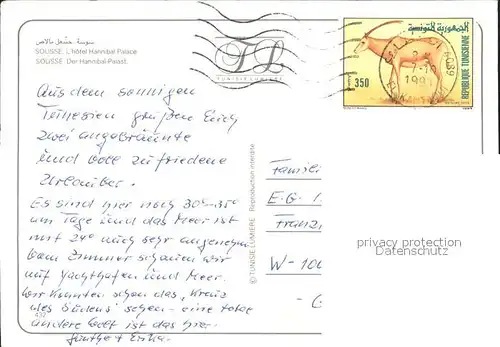 سوسة
SOUSSE. L'hôtel Hannibal Palace
SOUSSE. Der Hannibal-Palast.
TL
TUNISIE LUMIERE
الجمهورية التونسية
350
REPUBLIQUE TUNISIENNE
1991
Aus dem sonnigen
Tunesien grüßen Euch
zwei angebräunte
und voll zufriedene
Urlauber.
Es sind hier noch 30°-35°
am Tage und das Meer ist
mit 24° auch sehr angenehm.
Vom Zimmer schauen wir
auf Yachthafen und Meer.
Wir konnten schon das "Kreuz
des Südens" sehen - eine total
andere Welt ist das hier.
Günther + Erika
Familie
E.G.
Franz
W-100
© TUNISIE LUMIERE Reproduction interdite
432
privacy protection
Datenschutz